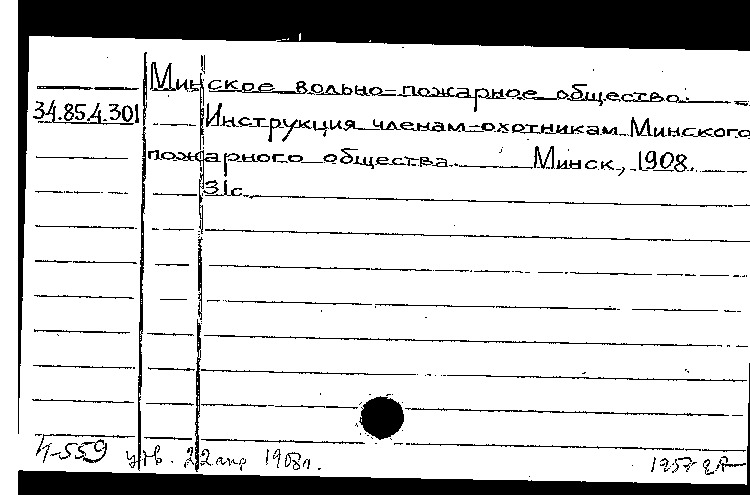 Минское вольно-пожарное общество.
34.85.4.301 Инструкция членам-охотникам Минского
пожарного общества. Минск, 1908.
31с.
И-559 утв. 22 апр 1908г.
1957